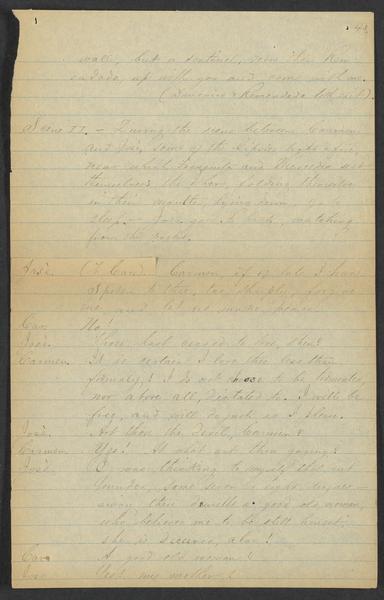 43
wait, but a sentinel, seen then Rem-
endado, up with you and come with me.
(Dancairo & Remendado both exit).
Scene II. - During the scene between Carmen
and José, some of the Gipsies light a fire,
near which Frasquita and Mercedes seat
themselves, the others, folding themselves
in their mantles, lying down, go to
sleep. - José goes to watching
from the rocks.
José. (To Carm.) Carmen, if of late I have
spoken to thee, too sharply, forgive
me, and let us make peace.
Car. No!
José. Thou hast ceased to love, then?
Carmen. It is certain I love thee less than
formerly! I do not choose to be tormented,
nor above all, dictated to. I will be
free, and will do just as I please.
José. Art thou the Devil, Carmen?
Carmen. Yes! At what art thou gazing?
José. I was thinking to myself that in
yonder, some seven or eight leagues
away there dwells a good old woman,
who believes me to be still honest;
she is deceived, alas!
Car. A good old woman!
José. Yes! my mother!